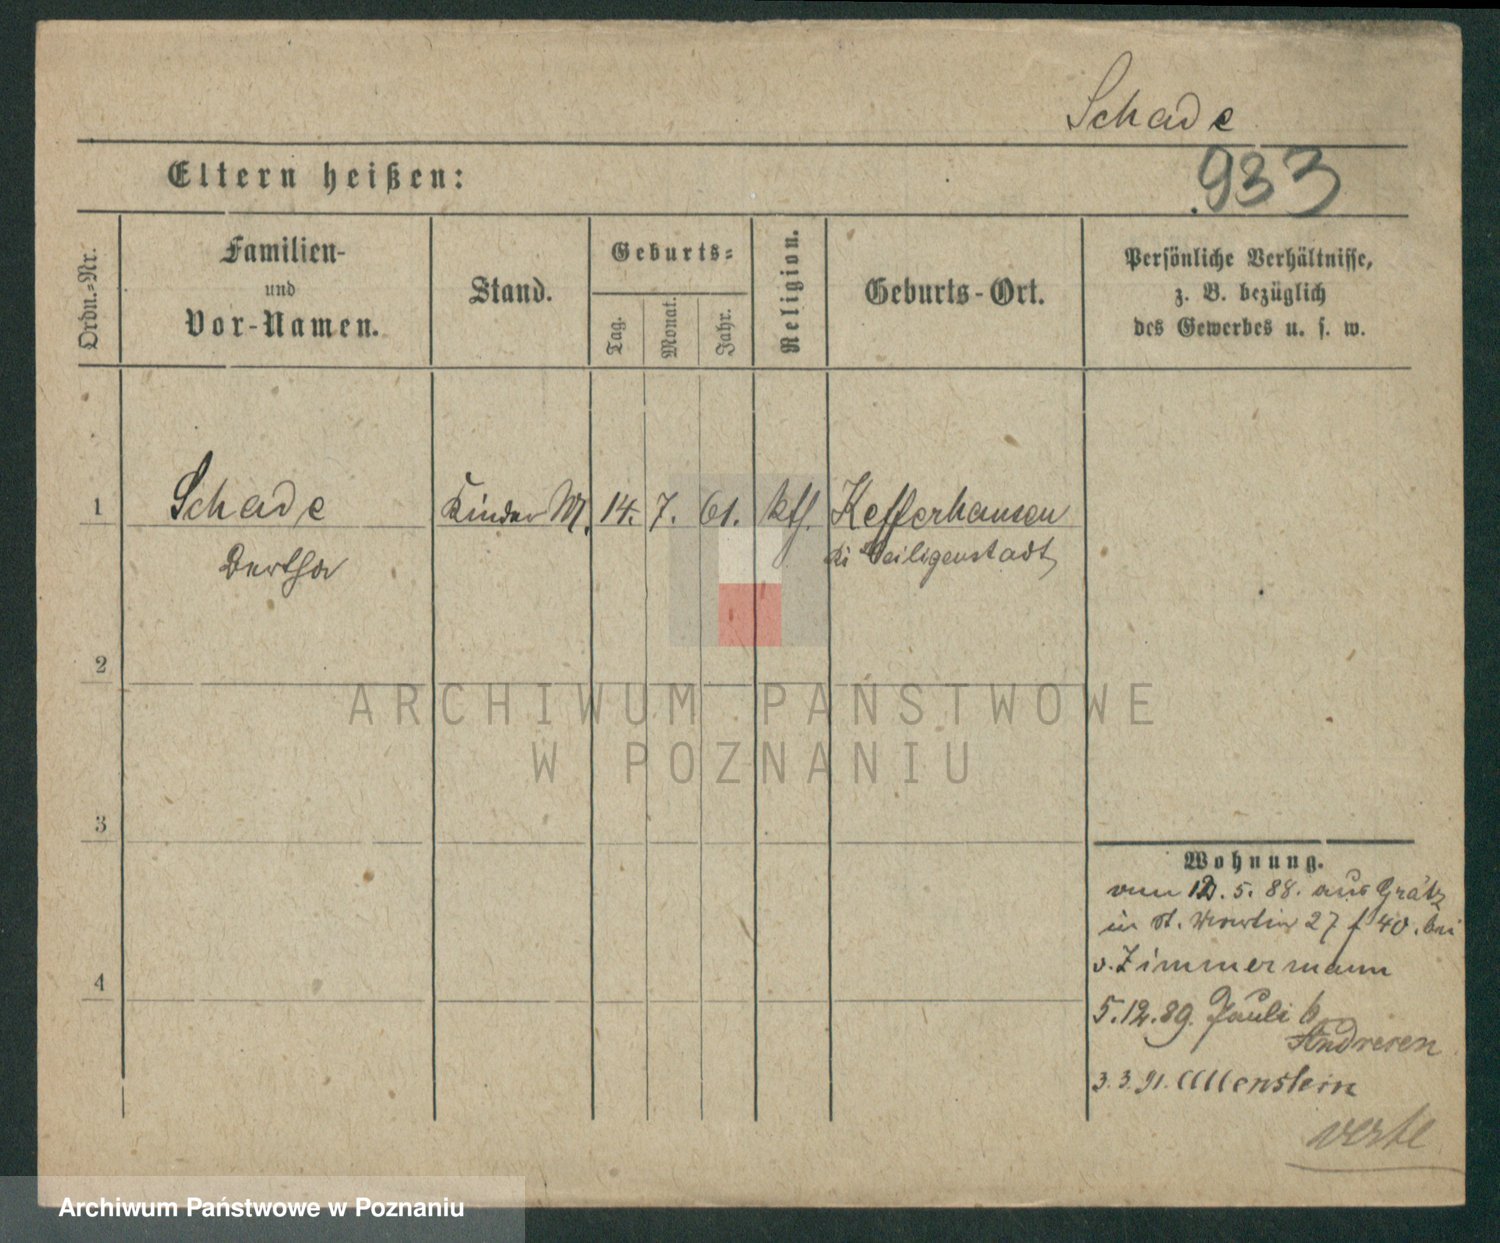 Schade
Eltern heißen:
933
Ordn.-Nr.
Familien-
und
Vor-Namen.
Stand.
Geburts-
Tag.
Monat.
Jahr.
Religion.
Geburts-Ort.
Persönliche Verhältnisse,
z. B. bezüglich
des Gewerbes u. s. w.
1
Schade
Kinder M.
14.
7.
61.
kth.
Kefferhausen
Bertha
Heiligenstadt
2
ARCHIWUM PAŃSTWOWE
W POZNANIU
3
Wohnung.
vom 12. 5. 88. aus Grätz
in St. Martin 27 f 40. bei
v. Zimmermann
4
5. 12. 89. Pauli 6
Andresen
3. 3. 91. Allenstein
verte
Archiwum Państwowe w Poznaniu